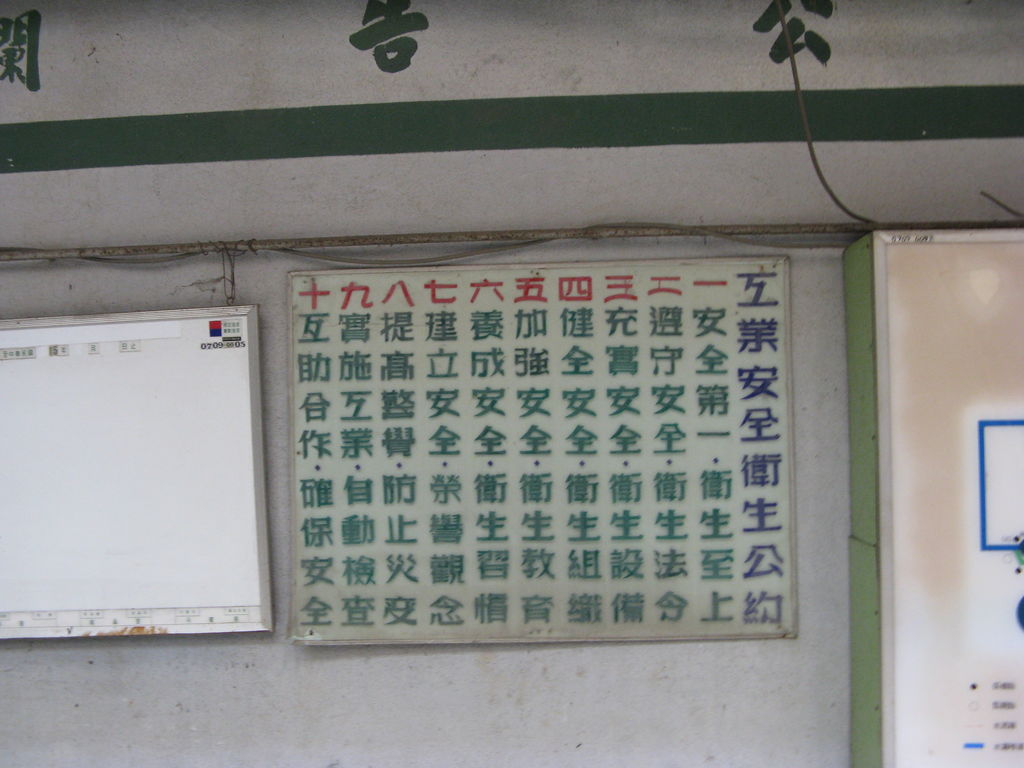 公告欄
工業安全衛生公約
一安全第一·衛生至上
二遵守安全·衛生法令
三充實安全·衛生設備
四健全安全·衛生組織
五加強安全·衛生教育
六養成安全·衛生習慣
七建立安全·榮譽觀念
八提高警覺·防止災変
九實施工業·自動檢查
十互助合作·確保安全